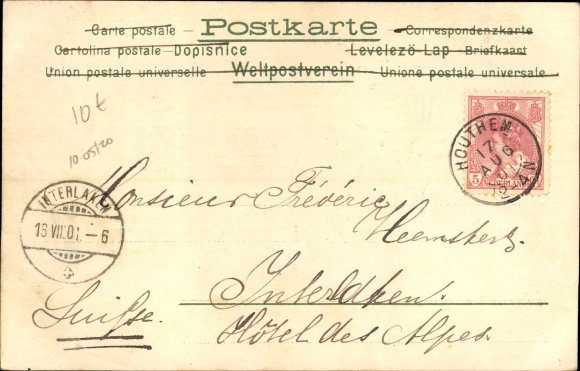 Carte postale – Postkarte – Correspondenzkarte
Cartolina postale – Dopisnice Levelező-Lap – Briefkaart
Union postale universelle Weltpostverein Unione postale universale
10€
10-05/20
HOUTHEM
17 AUG 01
5
NEDERLAND
INTERLAKEN
VII.01. – 6
Monsieur Frédéric
Heemskerk.
Interlaken.
Suisse.
Hôtel des Alpes.